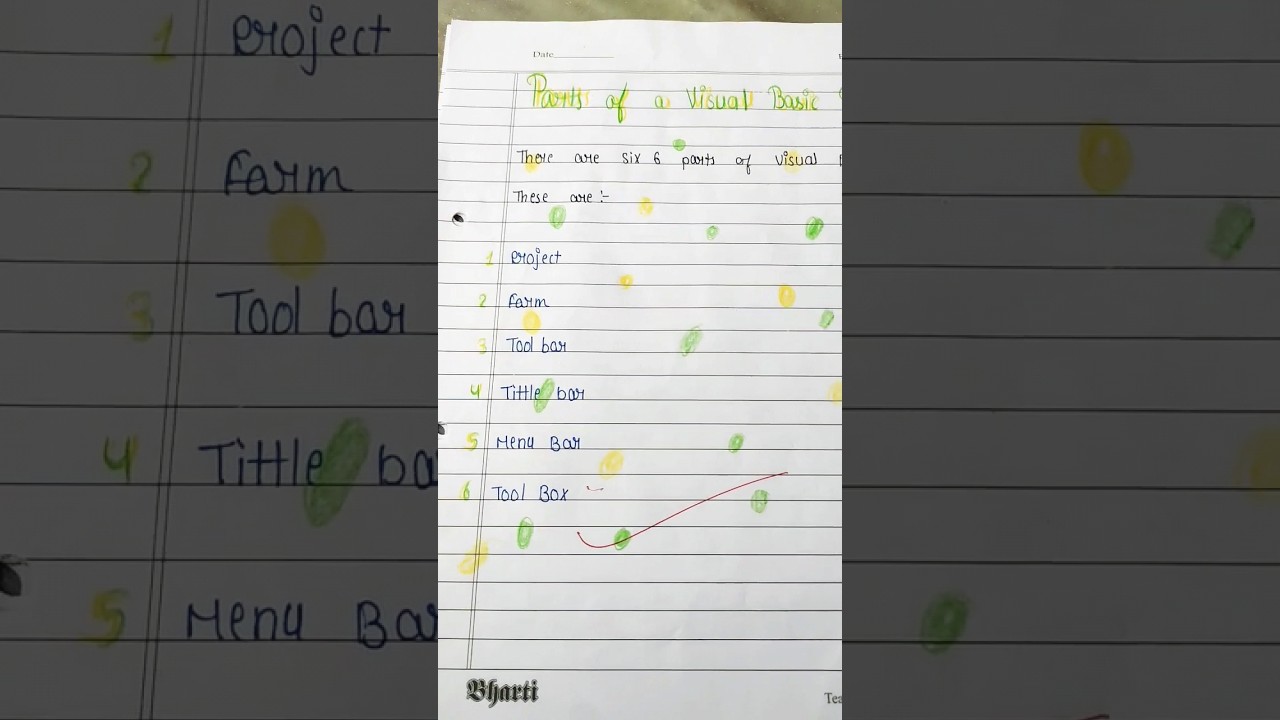 Date
Parts of a Visual Basic
There are six 6 parts of visual
These are :-
1 Project
2 Farm
3 Tool bar
4 Tittle bar
5 Menu Bar
6 Tool Box
Bharti
Tea